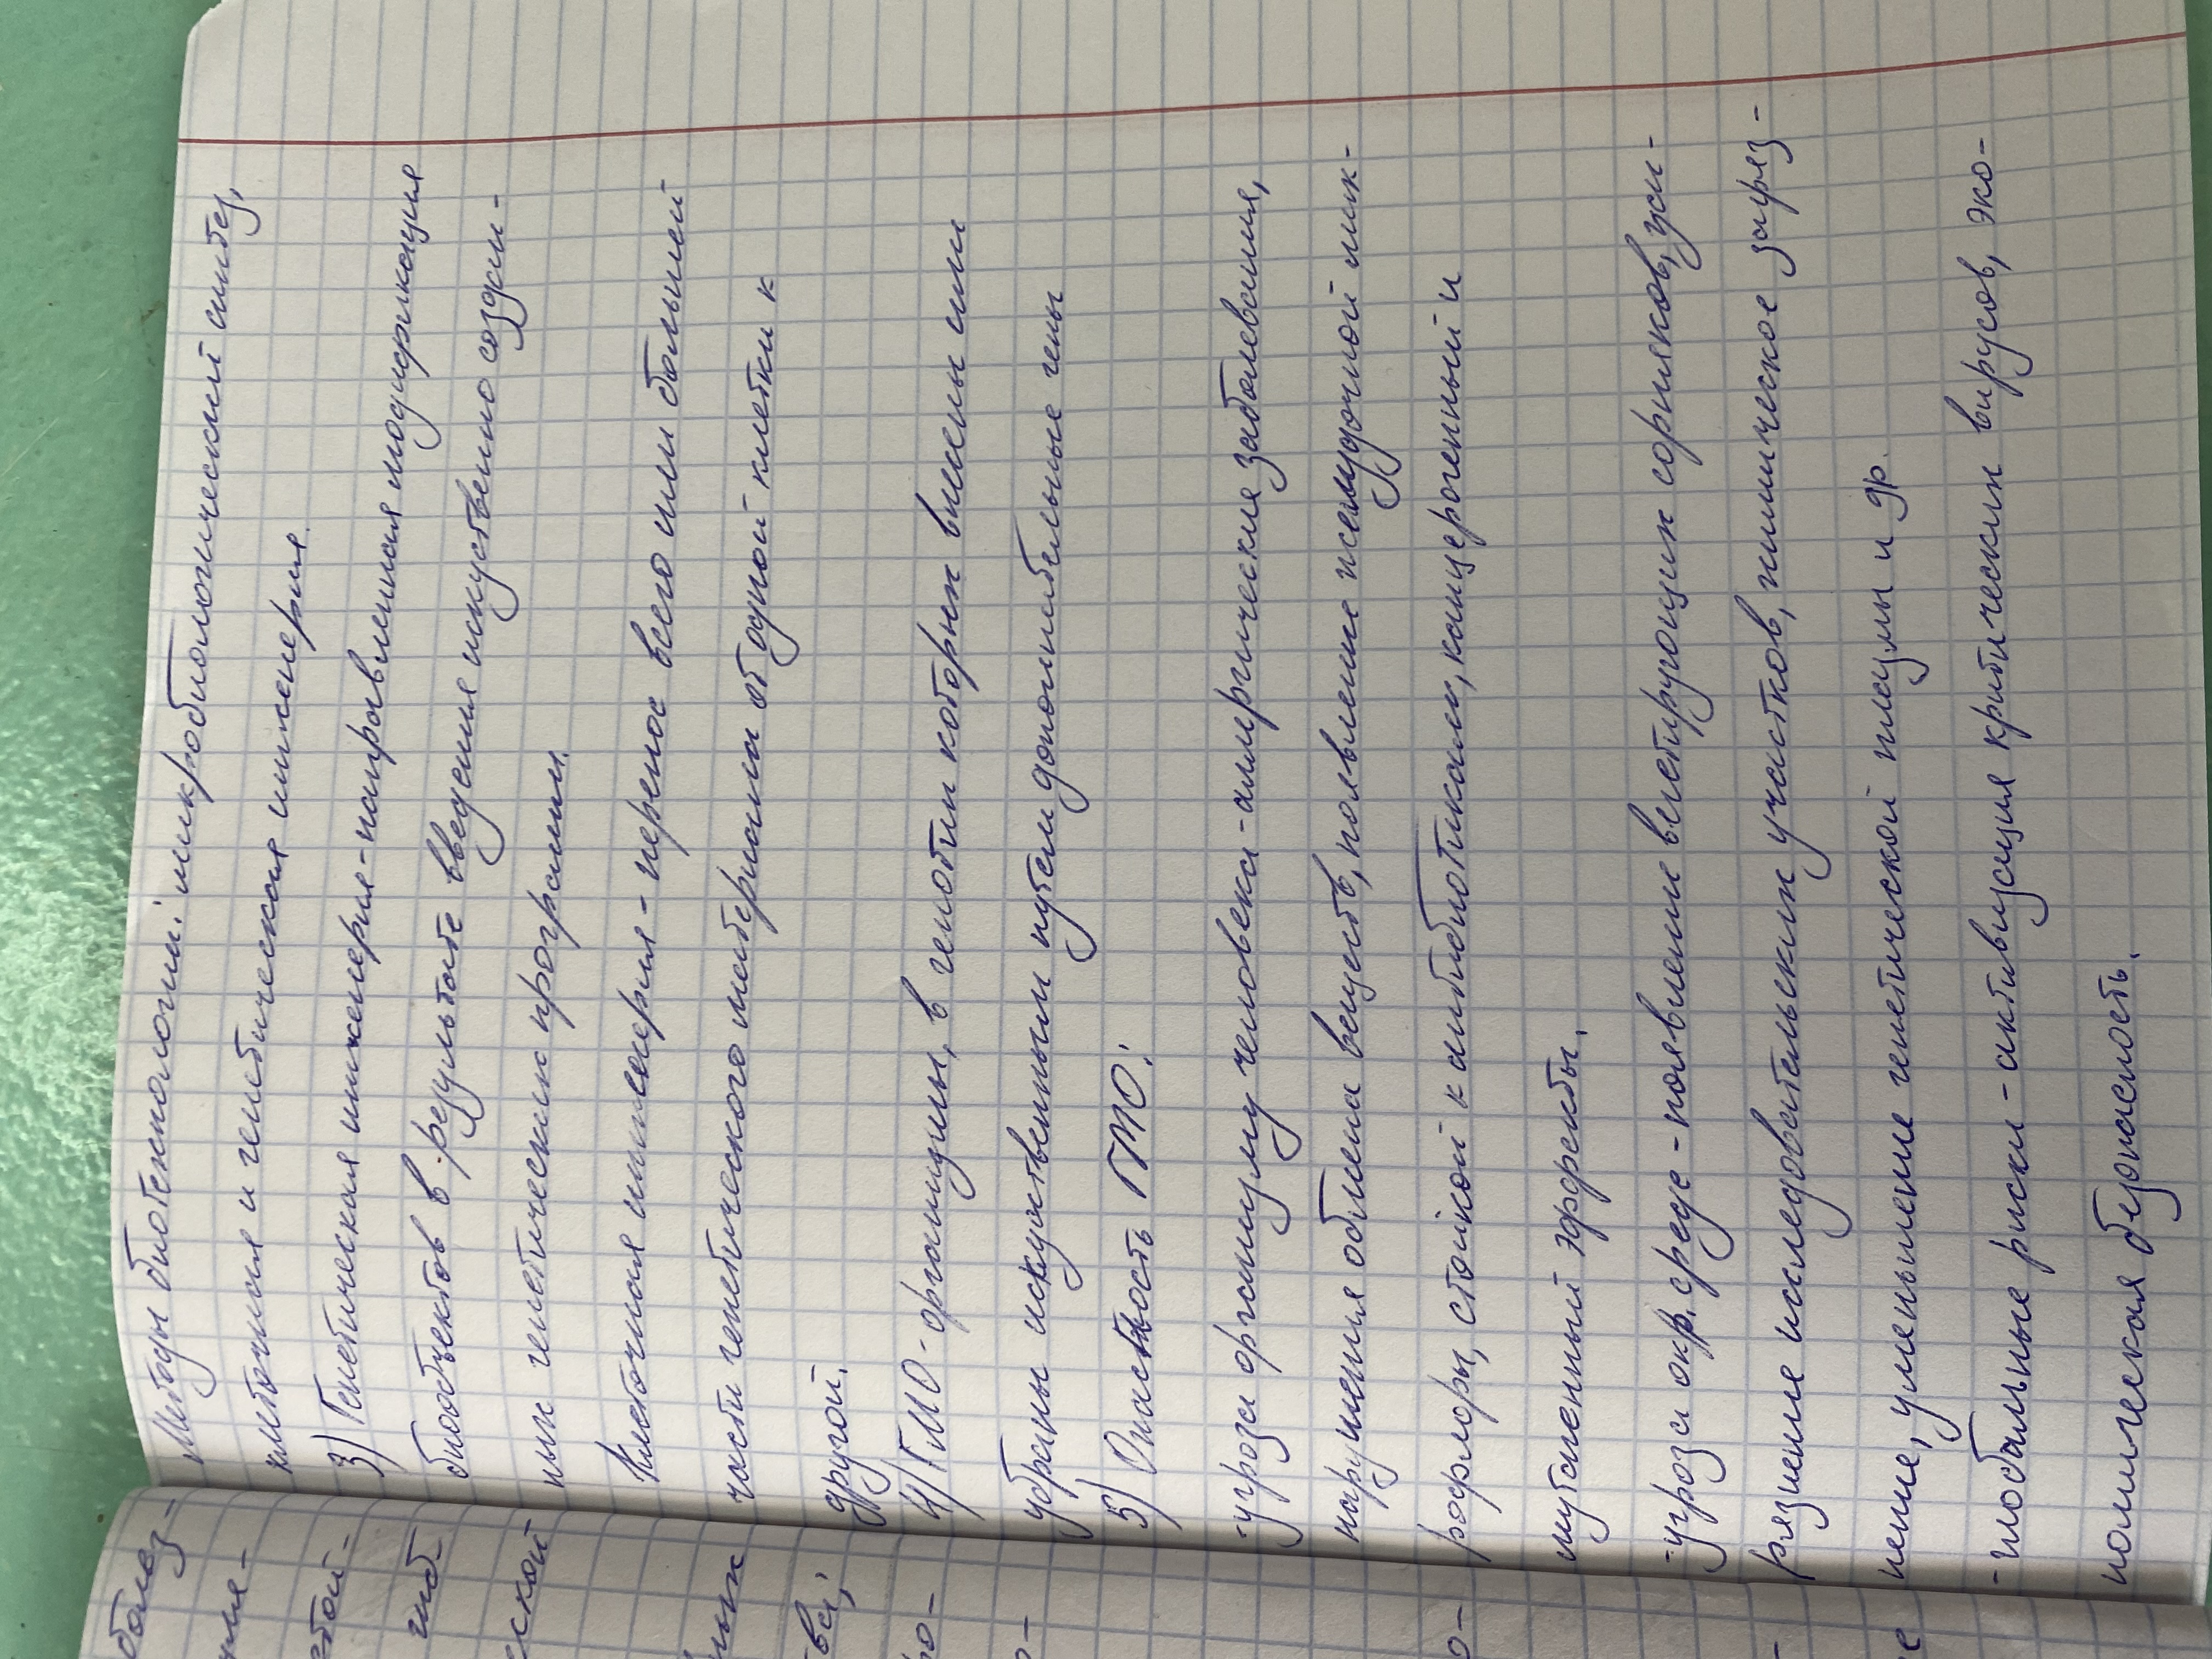 болез-
ской
ных
Методы биотехнологии: микробиологический синтез,
клеточная и генетическая инженерия.
3) Генетическая инженерия-направленная модификация
биообъектов в результате введения искуственно создан-
ных генетических программ.
Клеточная инженерия - перенос всего или большей
части генетического материала от одной клетки к
другой.
4) ГМО - организмы, в генотип которых внесены или
убраны искуственным путём дополнительные гены
5) Опастность ГМО:
-угроза организму человека-аллергические заболевания,
нарушения обмена веществ, появление желудочной мик-
рофлоры, стойкой к антибиотикам, канцерогенный и
мутагенный эффекты.
-угроза окр. среде - появление вегетирующих сорняков, заг-
рязнение исследовательских участков, химическое загряз-
нение, уменьшение генетической плазмы и др.
-глобальные риски - активизация критических вирусов, эко-
номическая безопасность.